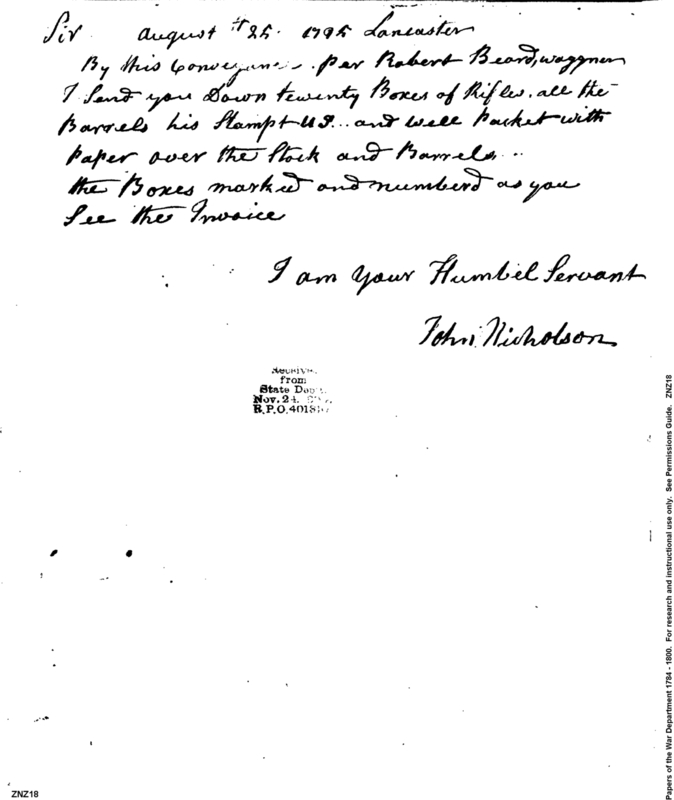 Sir August th 25. 1795 Lancaster
By this Conveyance per Robert Beard, waggner
I Send you Down twenty Boxes of Rifles. all the
Barrels his Stampt US.. and well Packet with
Paper over the Stock and Barrels..
the Boxes marked and numberd as you
See the Invoice
I am your Humbel Servant
John Nicholson
from
State Dept.
Nov. 24.
R.P.O. 4018
Papers of the War Department 1784 - 1800. For research and instructional use only. See Permissions Guide. ZNZ18
ZNZ18